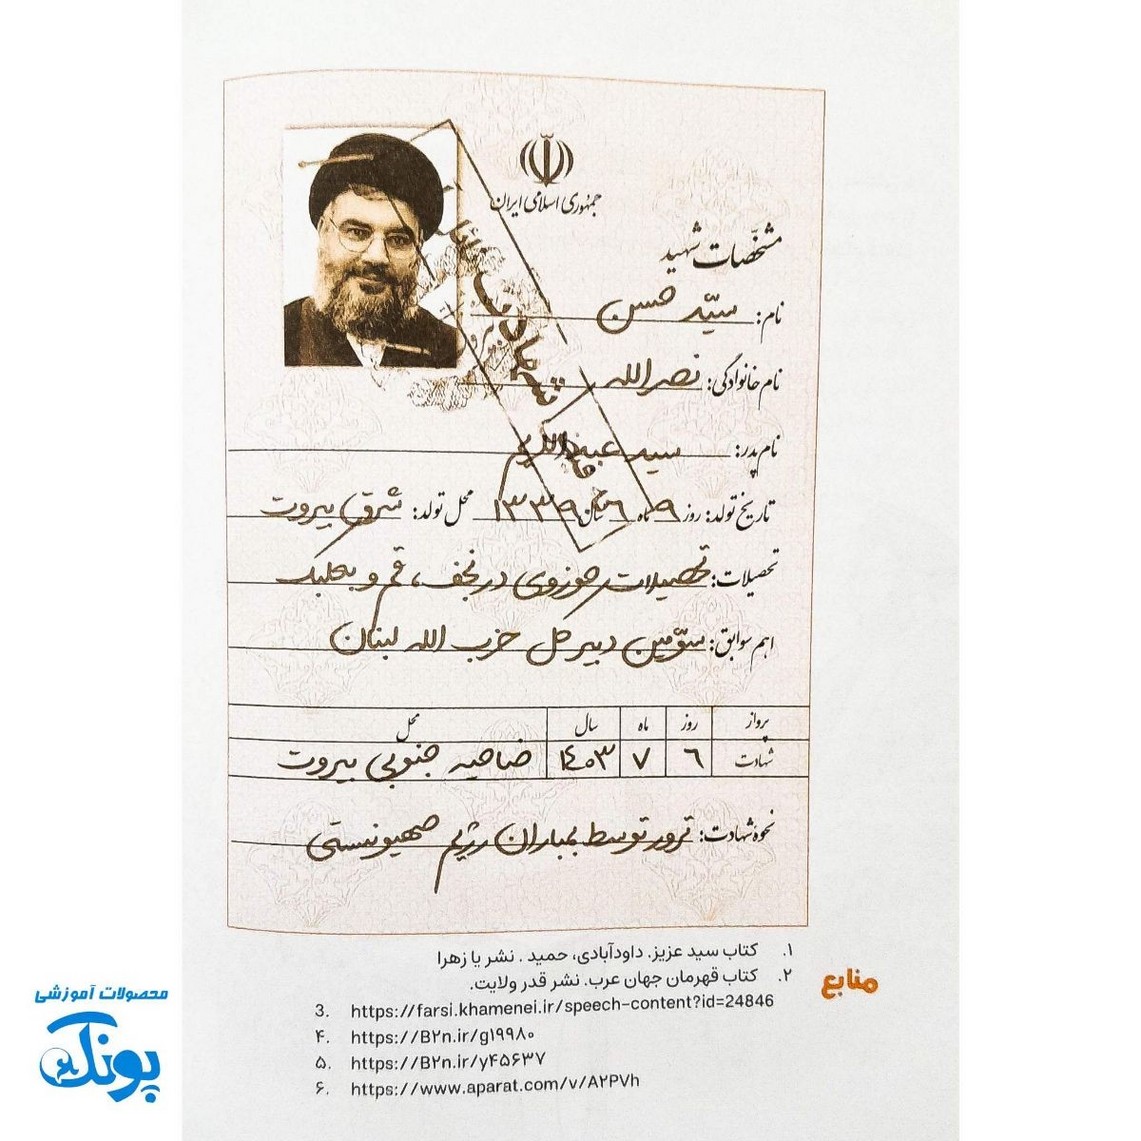 جمهوری اسلامی ایران
مشخّصات شهید
نام: سیّد حسن
نام خانوادگی: نصرالله
نام پدر: سید عبدالکریم
تاریخ تولد: روز ۹ ماه ۶ سال ۱۳۳۹ محل تولد: شرق بیروت
تحصیلات: تحصیلات حوزوی در نجف، قم و بعلبک
اهم سوابق: سوّمین دبیر کل حزب الله لبنان
پرواز روز ماه سال محل
شهادت ۶ ۷ ۱۴۰۳ ضاحیه جنوبی بیروت
نحوه شهادت: ترور توسط بمباران رژیم صهیونیستی
منابع
۱. کتاب سید عزیز. داودآبادی، حمید . نشر یا زهرا
۲. کتاب قهرمان جهان عرب. نشر قدر ولایت.
3. https://farsi.khamenei.ir/speech-content?id=24846
۴. https://B۲n.ir/g۱۹۹۸۰
۵. https://B۲n.ir/y۴۵۶۳۷
۶. https://www.aparat.com/v/A۲PVh
محصولات آموزشی
پونک